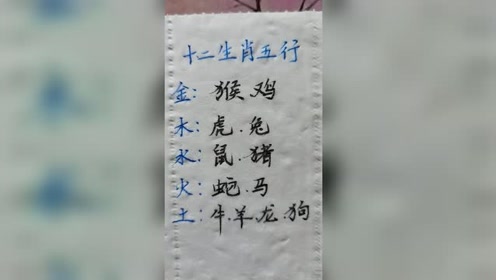 十二生肖五行
金：猴鸡
木：虎.兔
水：鼠.猪
火：蛇.马
土：牛.羊.龙.狗